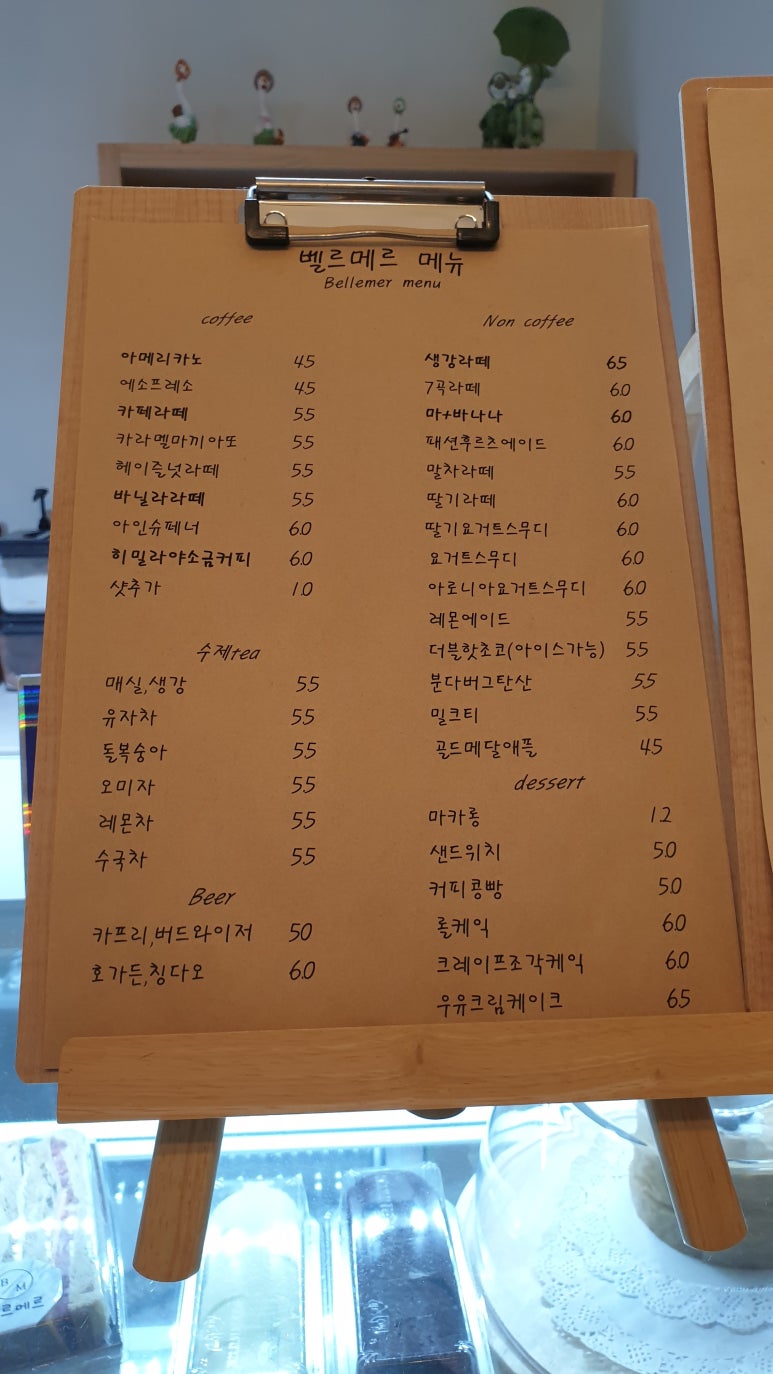 벨르메르 메뉴
Bellemer menu
coffee
아메리카노 4.5
에소프레소 4.5
카페라떼 5.5
카라멜마끼아또 5.5
헤이즐넛라떼 5.5
바닐라라떼 5.5
아인슈페너 6.0
히밀라야소금커피 6.0
샷추가 1.0
수제tea
매실,생강 5.5
유자차 5.5
돌복숭아 5.5
오미자 5.5
레몬차 5.5
수국차 5.5
Beer
카프리,버드와이저 5.0
호가든,칭다오 6.0
Non coffee
생강라떼 6.5
7곡라떼 6.0
마+바나나 6.0
패션후르츠에이드 6.0
말차라떼 5.5
딸기라떼 6.0
딸기요거트스무디 6.0
요거트스무디 6.0
아로니아요거트스무디 6.0
레몬에이드 5.5
더블핫초코(아이스가능) 5.5
분다버그탄산 5.5
밀크티 5.5
골드메달애플 4.5
dessert
마카롱 1.2
샌드위치 5.0
커피콩빵 5.0
롤케익 6.0
크레이프조각케익 6.0
우유크림케이크 6.5
B M
르메르